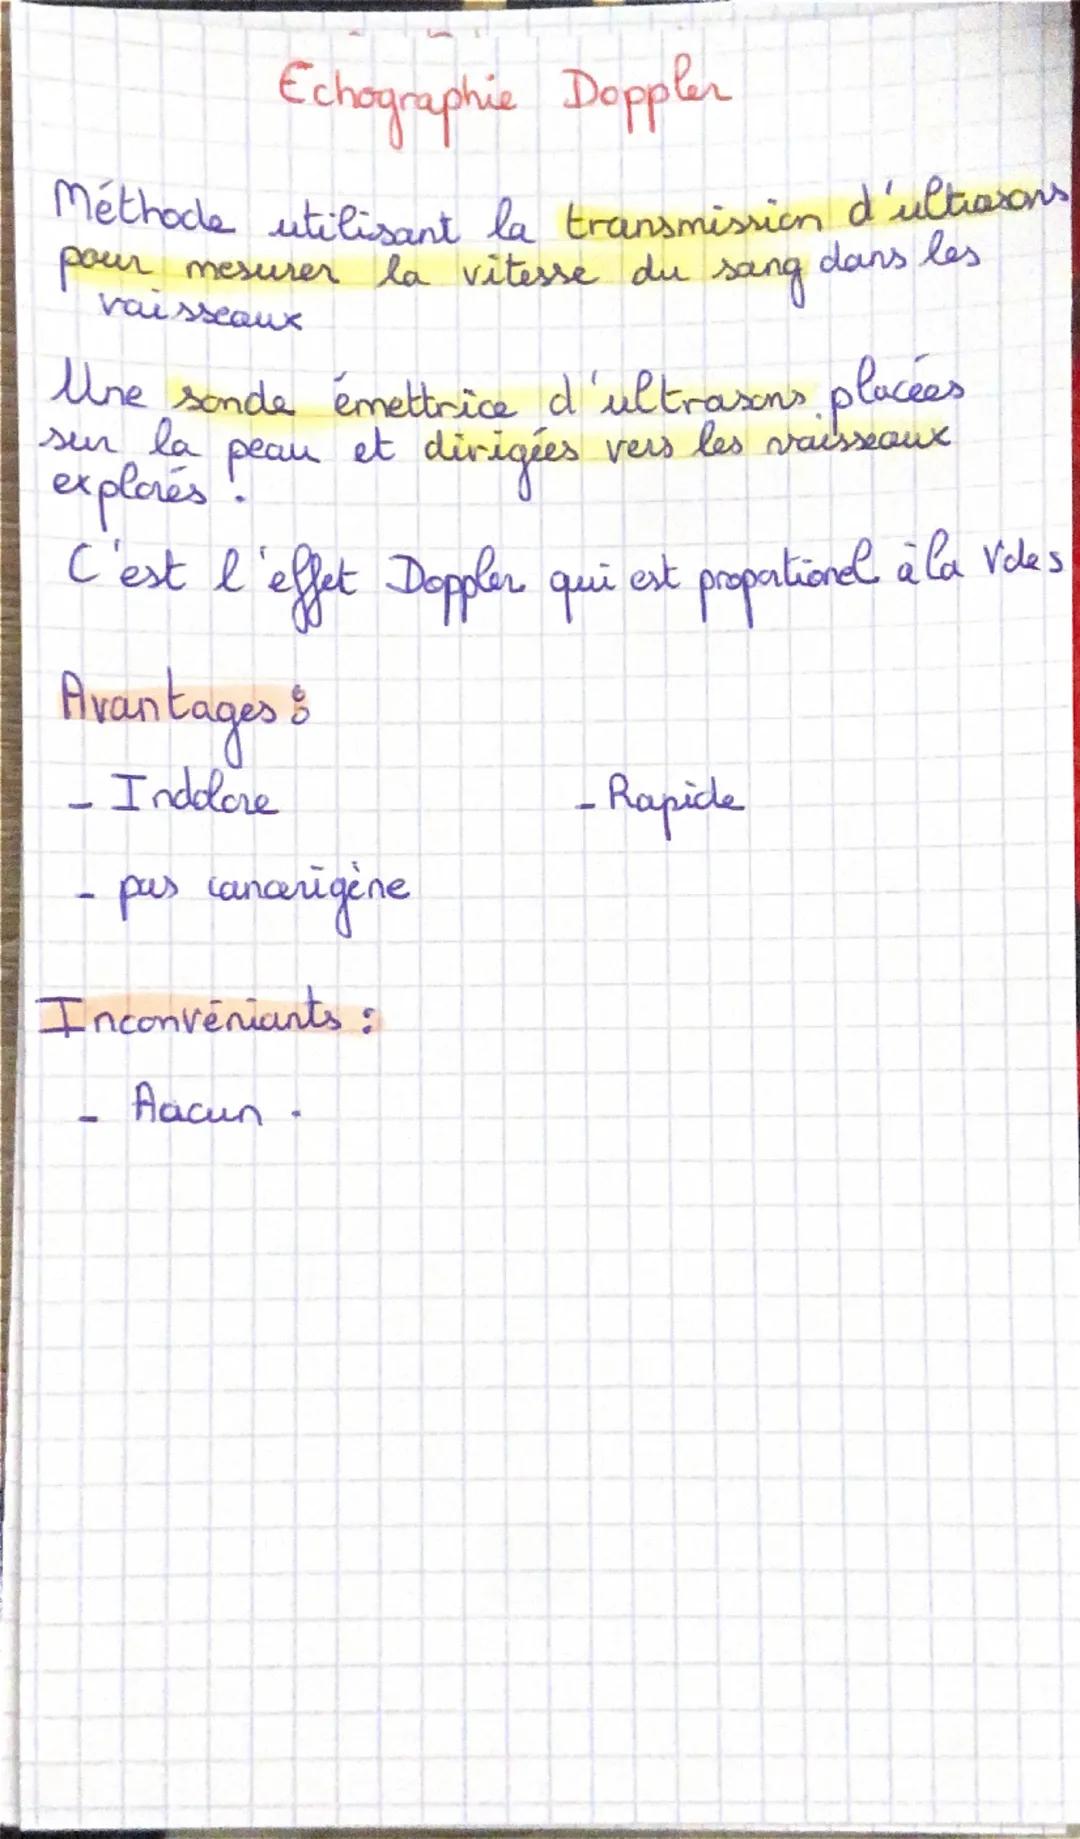 Echographie Doppler
Méthode utilisant la transmission d'ultrasons
pour mesurer la vitesse du sang dans les
vaisseaux
Une sonde émettrice d'ultrasons placées
sur la peau et dirigées vers les vaisseaux
explorés.
C'est l'effet Doppler qui est proportionel à la V de s
Avantages :
- Indolore - Rapide
- pas cancerigène
Inconvéniants :
- Aucun .